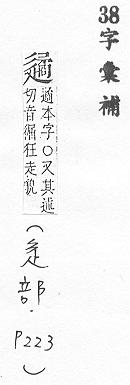 38字彙補
遹本字○又其述
切音繘狂走貌
(辵部 P223)